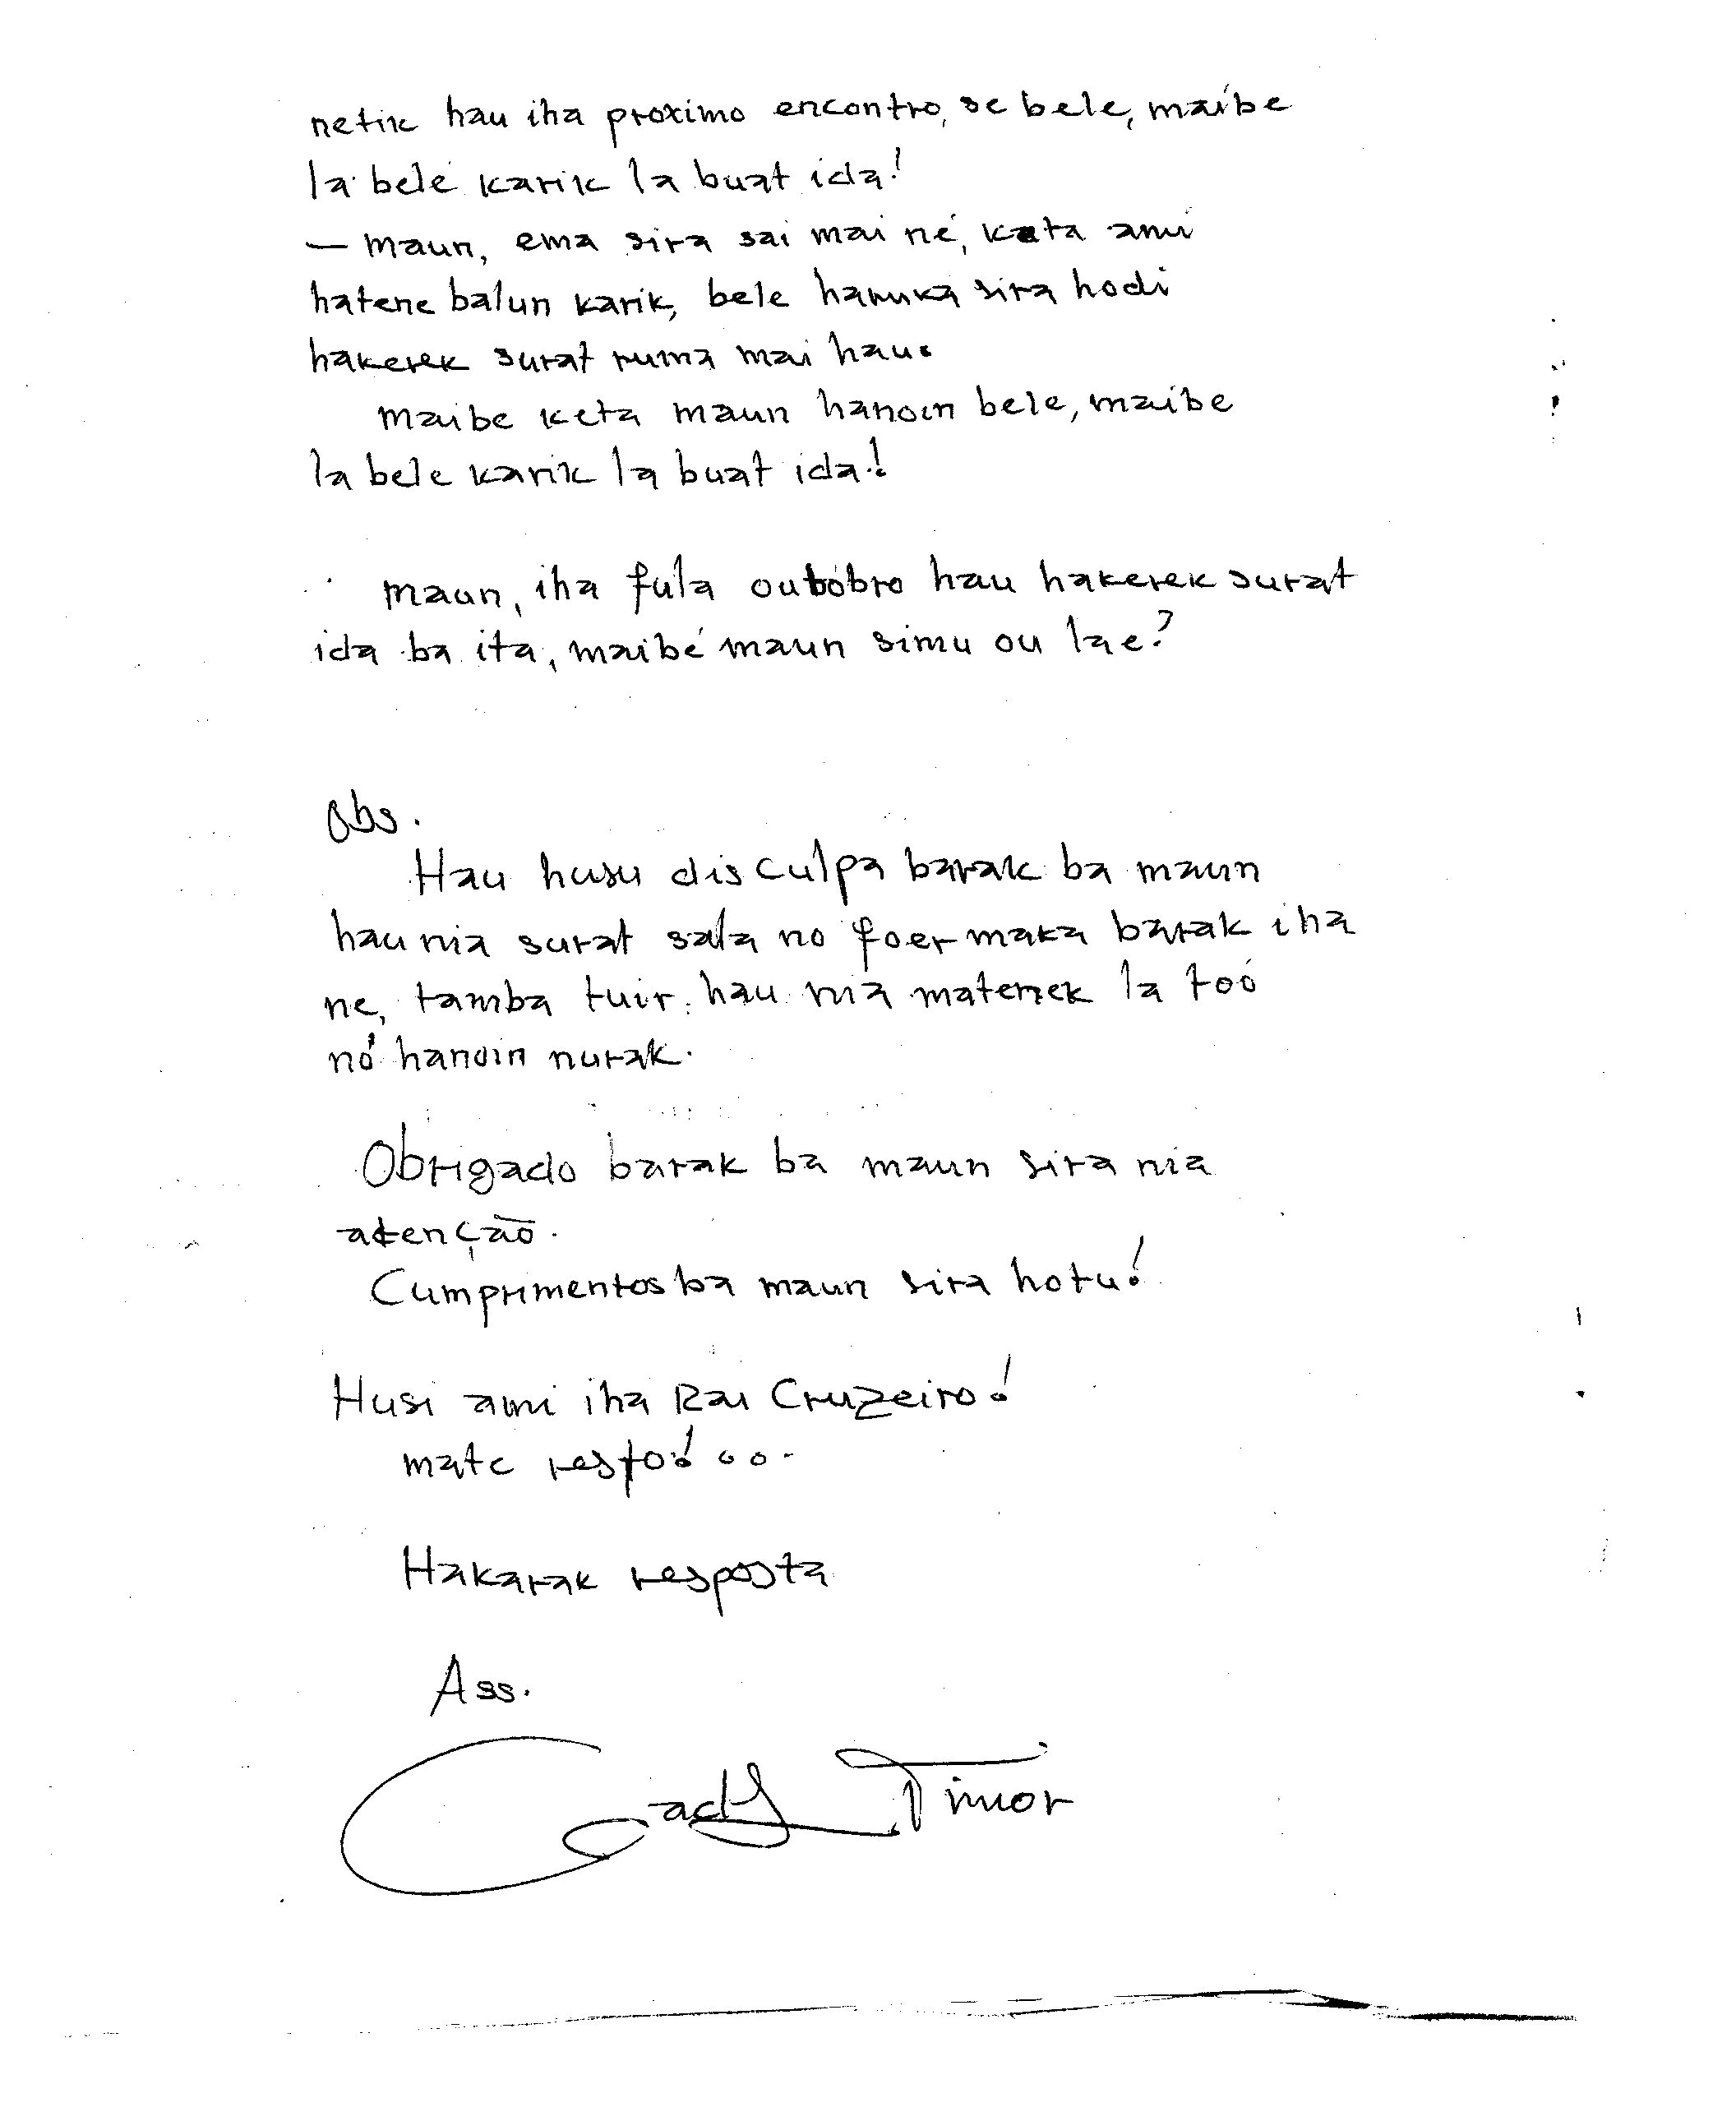 netik hau iha proximo encontro, se bele, maibe
la bele karik la buat ida!
— maun, ema sira sai mai né, keta ami
hatene balun karik, bele haruka sira hodi
hakerek surat ruma mai hau.
maibe keta maun hanoin bele, maibe
la bele karik la buat ida!
maun, iha fula outobro hau hakerek surat
ida ba ita, maibé maun simu ou lae?
Obs.
Hau husu disculpa barak ba maun
hau nia surat sala no foer maka barak iha
ne, tamba tuir hau nia matenek la toó
nó hanoin nurak.
Obrigado barak ba maun sira nia
atenção.
Cumprimentos ba maun sira hotu!
Husi ami iha Rai Cruzeiro!
mate resto! ...
Hakarak resposta
Ass.
Timor